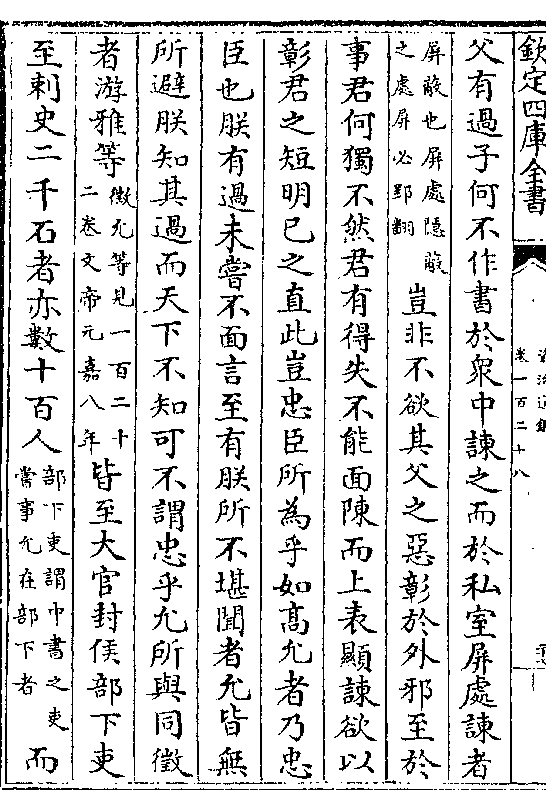 欽定四庫全書
資治通鑑
卷一百二十八
父有過子何不作書於衆中諫之而於私室屏處諫者
屏蔽也屏處隱蔽
之處屏必郢翻
豈非不欲其父之惡彰於外邪至於
事君何獨不然君有得失不能面陳而上表顯諫欲以
彰君之短明已之直此豈忠臣所為乎如髙允者乃忠
臣也朕有過未嘗不面言至有朕所不堪聞者允皆無
所避朕知其過而天下不知可不謂忠乎允所與同徵
者游雅等
徵允等見一百二十
二卷文帝元嘉八年
皆至大官封侯部下吏
至刺史二千石者亦數十百人
部下吏謂中書之吏
嘗事允在部下者
而